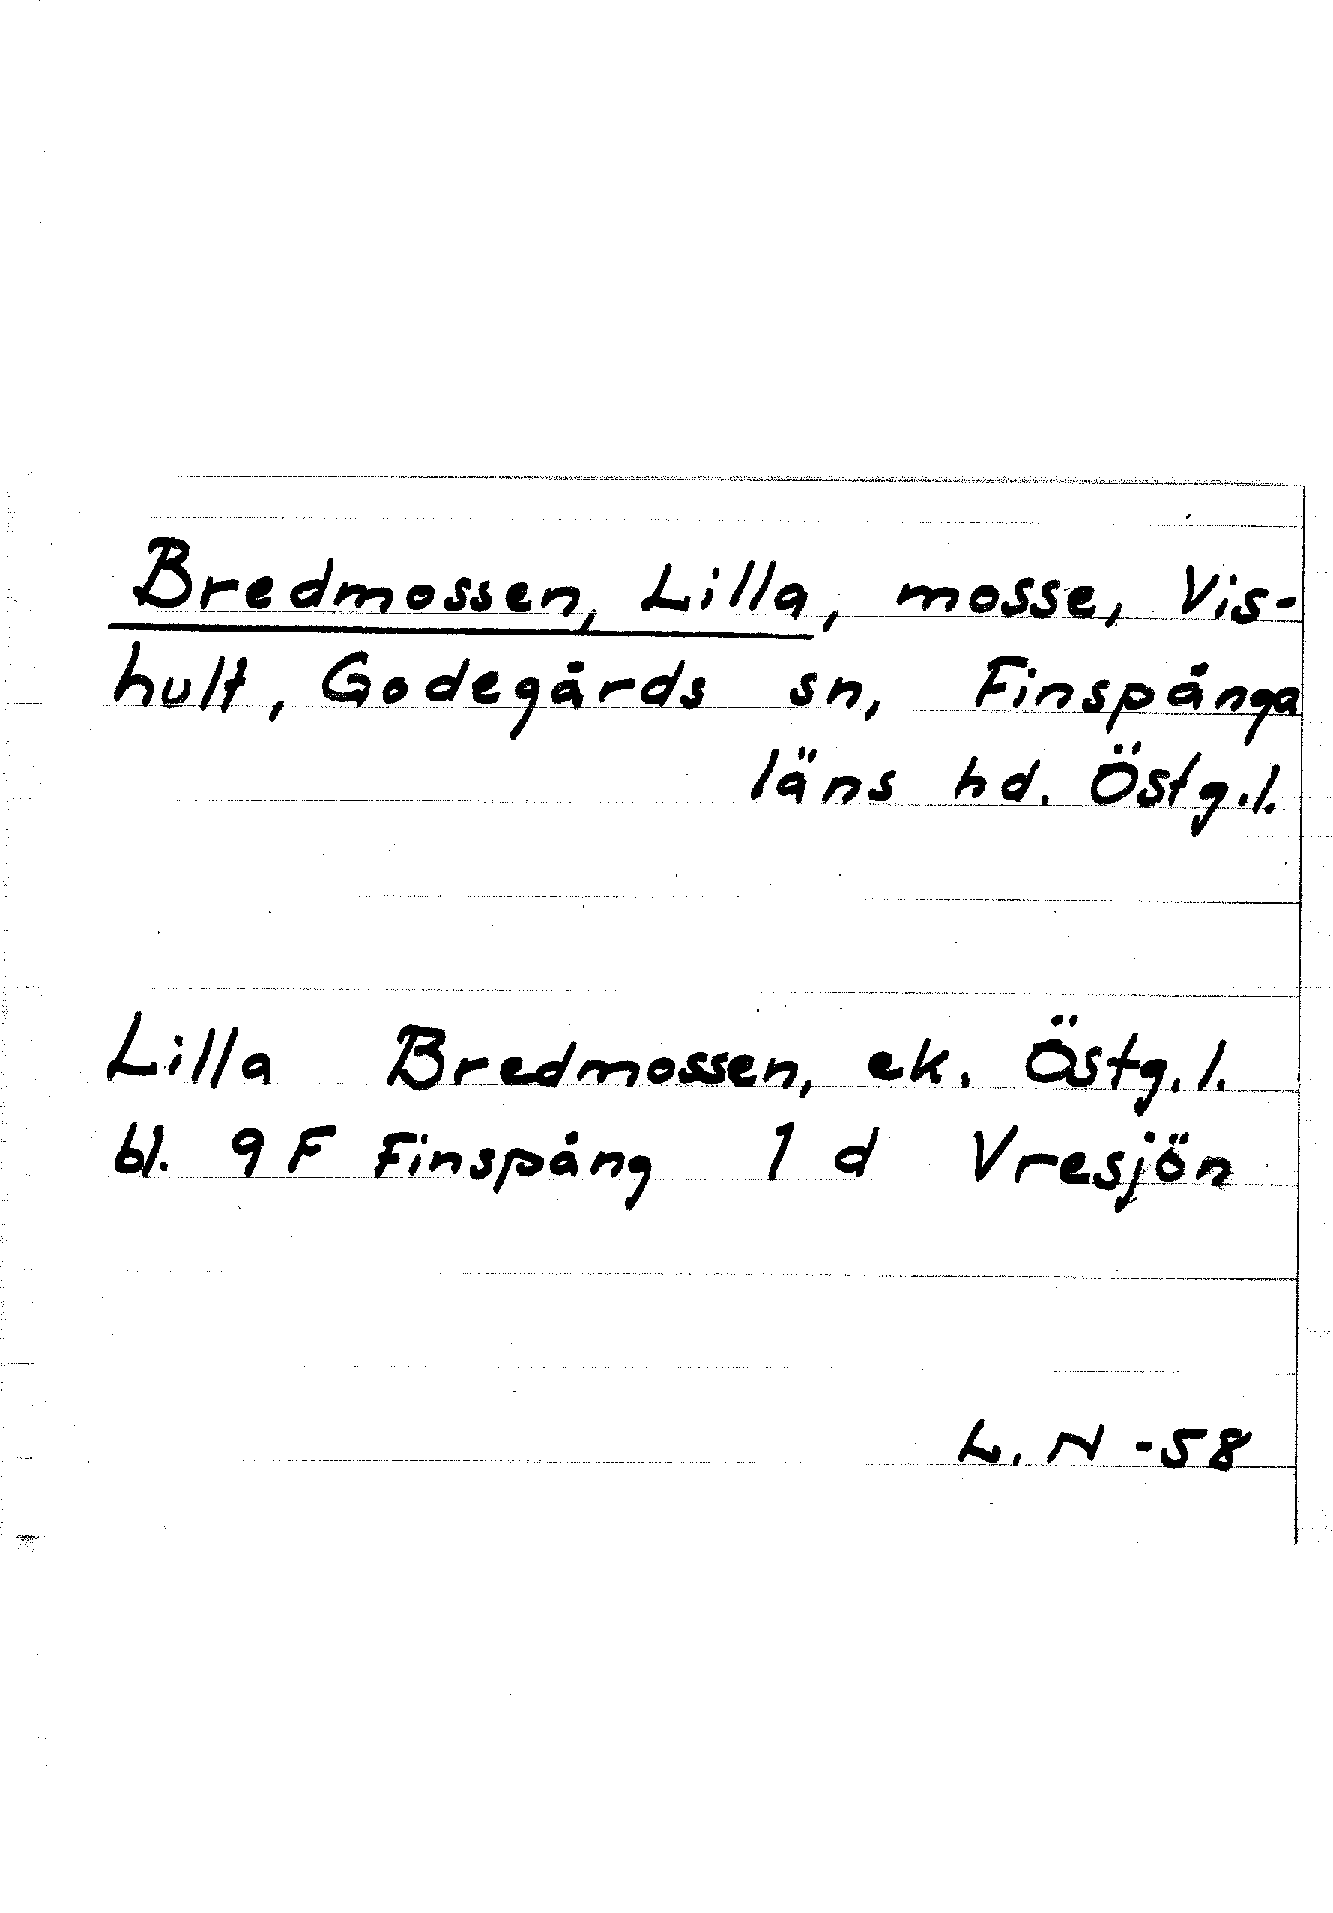 Bredmossen, Lilla, mosse, Vis-
hult, Godegårds sn, Finspånga
läns hd. Östg.l.
Lilla Bredmossen, ek. Östg.l.
bl. 9F Finspång 1 d Vresjön
L. N -58